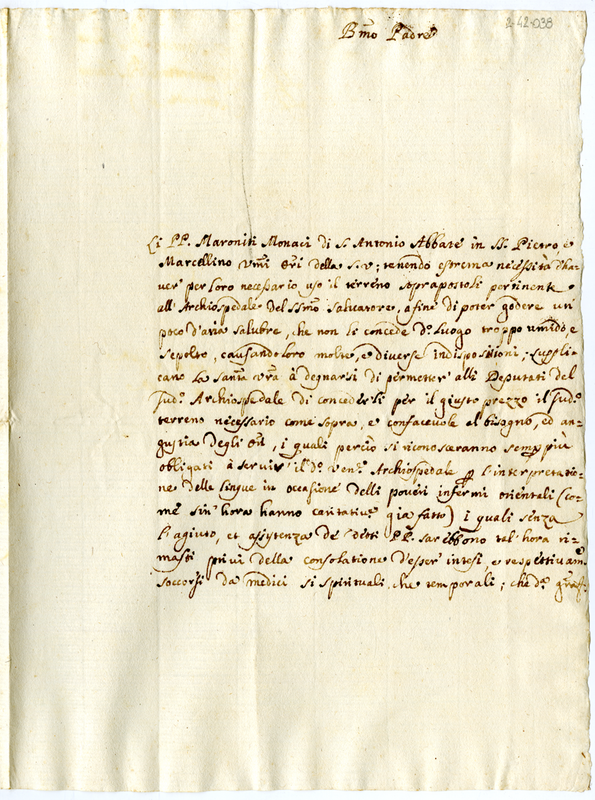 2-42-038
Bmo Padre
Li PP. Maroniti Monaci di S. Antonio Abbate in SS. Pietro, e
Marcellino Vmi Ori della S.V.; tenendo estrema necessità d'ha-
ver per loro necessario uso il terreno soprapostoli pertinente
all'Archiospedale del SSmo Salvatore, afine di poter godere un
poco d'aria salubre, che non li concede do luogo troppo umido, e
sepolto, causando loro molte, e diverse indispositioni; suppli-
cano la Santa Vra à degnarsi di permetter alli Deputati del
sudo Archiospedale di concederli per il giusto prezzo il sudo
terreno necessario come sopra, e confacevole al bisogno, ed an-
gustia degli Ori, i quali perciò si riconosceranno sempre più
obligati à servir il do Vene Archiospedale per l'interpretatio-
ne delle lingue in occasione delli poveri infermi orientali (co-
me sin'hora hanno caritative già fatto) i quali senza
l'agiuto, et assistenza de' detti PP. sarebbono tal'hora ri-
masti privi della consolatione d'esser intesi, e respettivame
soccorsi da medici sì spirituali, che temporali; che da